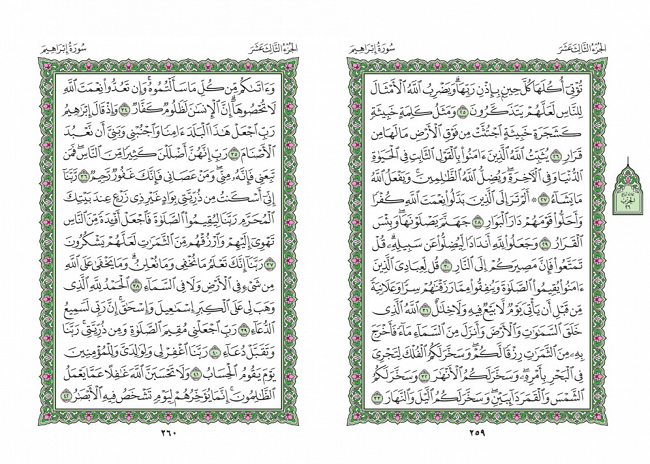 الجُزْءُ الثَّالِثَ عَشَرَ سُورَةُ إِبْرَاهِيمَ
تُؤْتِىٓ أُكُلَهَا كُلَّ حِينٍۭ بِإِذْنِ رَبِّهَاۗ وَيَضْرِبُ ٱللَّهُ ٱلْأَمْثَالَ
لِلنَّاسِ لَعَلَّهُمْ يَتَذَكَّرُونَ ٢٥ وَمَثَلُ كَلِمَةٍ خَبِيثَةٍ
كَشَجَرَةٍ خَبِيثَةٍ ٱجْتُثَّتْ مِن فَوْقِ ٱلْأَرْضِ مَا لَهَا مِن
قَرَارٍ ٢٦ يُثَبِّتُ ٱللَّهُ ٱلَّذِينَ ءَامَنُوا۟ بِٱلْقَوْلِ ٱلثَّابِتِ فِى ٱلْحَيَوٰةِ
ٱلدُّنْيَا وَفِى ٱلْـَٔاخِرَةِۖ وَيُضِلُّ ٱللَّهُ ٱلظَّـٰلِمِينَۚ وَيَفْعَلُ ٱللَّهُ
مَا يَشَآءُ ٢٧ أَلَمْ تَرَ إِلَى ٱلَّذِينَ بَدَّلُوا۟ نِعْمَتَ ٱللَّهِ كُفْرًا
وَأَحَلُّوا۟ قَوْمَهُمْ دَارَ ٱلْبَوَارِ ٢٨ جَهَنَّمَ يَصْلَوْنَهَاۖ وَبِئْسَ
ٱلْقَرَارُ ٢٩ وَجَعَلُوا۟ لِلَّهِ أَندَادًا لِّيُضِلُّوا۟ عَن سَبِيلِهِۦۗ قُلْ
تَمَتَّعُوا۟ فَإِنَّ مَصِيرَكُمْ إِلَى ٱلنَّارِ ٣٠ قُل لِّعِبَادِىَ ٱلَّذِينَ
ءَامَنُوا۟ يُقِيمُوا۟ ٱلصَّلَوٰةَ وَيُنفِقُوا۟ مِمَّا رَزَقْنَـٰهُمْ سِرًّا وَعَلَانِيَةً
مِّن قَبْلِ أَن يَأْتِىَ يَوْمٌ لَّا بَيْعٌ فِيهِ وَلَا خِلَـٰلٌ ٣١ ٱللَّهُ ٱلَّذِى
خَلَقَ ٱلسَّمَـٰوَٰتِ وَٱلْأَرْضَ وَأَنزَلَ مِنَ ٱلسَّمَآءِ مَآءً فَأَخْرَجَ
بِهِۦ مِنَ ٱلثَّمَرَٰتِ رِزْقًا لَّكُمْۖ وَسَخَّرَ لَكُمُ ٱلْفُلْكَ لِتَجْرِىَ
فِى ٱلْبَحْرِ بِأَمْرِهِۦۖ وَسَخَّرَ لَكُمُ ٱلْأَنْهَـٰرَ ٣٢ وَسَخَّرَ لَكُمُ
ٱلشَّمْسَ وَٱلْقَمَرَ دَآئِبَيْنِۖ وَسَخَّرَ لَكُمُ ٱلَّيْلَ وَٱلنَّهَارَ ٣٣
٢٥٩
الحِزْبُ
٢٦
الجُزْءُ الثَّالِثَ عَشَرَ سُورَةُ إِبْرَاهِيمَ
وَءَاتَىٰكُم مِّن كُلِّ مَا سَأَلْتُمُوهُۚ وَإِن تَعُدُّوا۟ نِعْمَتَ ٱللَّهِ
لَا تُحْصُوهَآۗ إِنَّ ٱلْإِنسَـٰنَ لَظَلُومٌ كَفَّارٌ ٣٤ وَإِذْ قَالَ إِبْرَٰهِيمُ
رَبِّ ٱجْعَلْ هَـٰذَا ٱلْبَلَدَ ءَامِنًا وَٱجْنُبْنِى وَبَنِىَّ أَن نَّعْبُدَ
ٱلْأَصْنَامَ ٣٥ رَبِّ إِنَّهُنَّ أَضْلَلْنَ كَثِيرًا مِّنَ ٱلنَّاسِۖ فَمَن
تَبِعَنِى فَإِنَّهُۥ مِنِّىۖ وَمَنْ عَصَانِى فَإِنَّكَ غَفُورٌ رَّحِيمٌ ٣٦ رَّبَّنَآ
إِنِّىٓ أَسْكَنتُ مِن ذُرِّيَّتِى بِوَادٍ غَيْرِ ذِى زَرْعٍ عِندَ بَيْتِكَ
ٱلْمُحَرَّمِ رَبَّنَا لِيُقِيمُوا۟ ٱلصَّلَوٰةَ فَٱجْعَلْ أَفْـِٔدَةً مِّنَ ٱلنَّاسِ
تَهْوِىٓ إِلَيْهِمْ وَٱرْزُقْهُم مِّنَ ٱلثَّمَرَٰتِ لَعَلَّهُمْ يَشْكُرُونَ
٣٧ رَبَّنَآ إِنَّكَ تَعْلَمُ مَا نُخْفِى وَمَا نُعْلِنُۗ وَمَا يَخْفَىٰ عَلَى ٱللَّهِ
مِن شَىْءٍ فِى ٱلْأَرْضِ وَلَا فِى ٱلسَّمَآءِ ٣٨ ٱلْحَمْدُ لِلَّهِ ٱلَّذِى
وَهَبَ لِى عَلَى ٱلْكِبَرِ إِسْمَـٰعِيلَ وَإِسْحَـٰقَۚ إِنَّ رَبِّى لَسَمِيعُ
ٱلدُّعَآءِ ٣٩ رَبِّ ٱجْعَلْنِى مُقِيمَ ٱلصَّلَوٰةِ وَمِن ذُرِّيَّتِىۚ رَبَّنَا
وَتَقَبَّلْ دُعَآءِ ٤٠ رَبَّنَا ٱغْفِرْ لِى وَلِوَٰلِدَىَّ وَلِلْمُؤْمِنِينَ
يَوْمَ يَقُومُ ٱلْحِسَابُ ٤١ وَلَا تَحْسَبَنَّ ٱللَّهَ غَـٰفِلًا عَمَّا يَعْمَلُ
ٱلظَّـٰلِمُونَۚ إِنَّمَا يُؤَخِّرُهُمْ لِيَوْمٍ تَشْخَصُ فِيهِ ٱلْأَبْصَـٰرُ ٤٢
٢٦٠